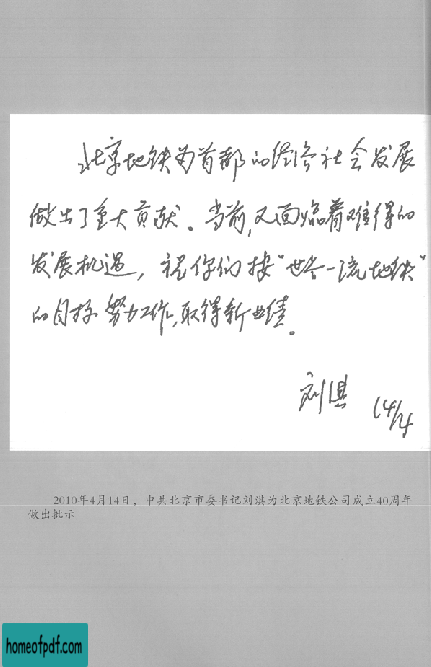 北京地铁为首都的经济社会发展
做出了重大贡献。当前,又面临着难得的
发展机遇，祝你们按“世界一流地铁”
的目标努力工作,取得新业绩。
刘淇 14/4
2010年4月14日，中共北京市委书记刘淇为北京地铁公司成立40周年
做出批示
homeofpdf.com